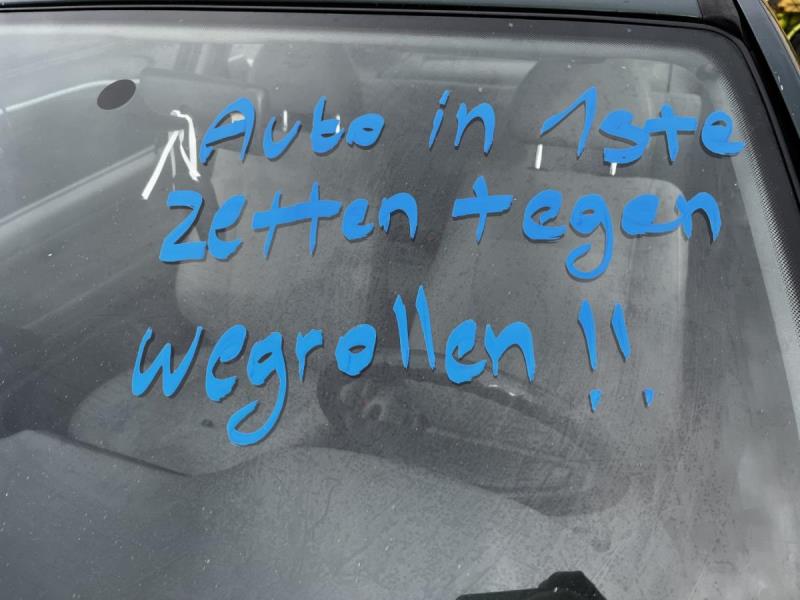 Auto in 1ste
zetten tegen
wegrollen !!